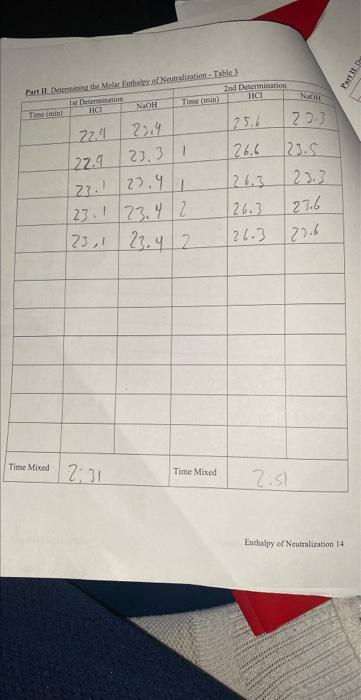 Part II: Determining the Molar Enthalpy of Neutralization - Table 3
1st Determination 2nd Determination
Time (min) HCl NaOH Time (min) HCl NaOH
22.9 23.4 25.6 23.3
22.9 23.3 1 26.6 23.5
23.1 23.4 1 26.3 23.3
23.1 23.4 2 26.3 23.6
23.1 23.4 2 26.3 23.6
Time Mixed 2:31 Time Mixed 2.51
Enthalpy of Neutralization 14
Part II: D